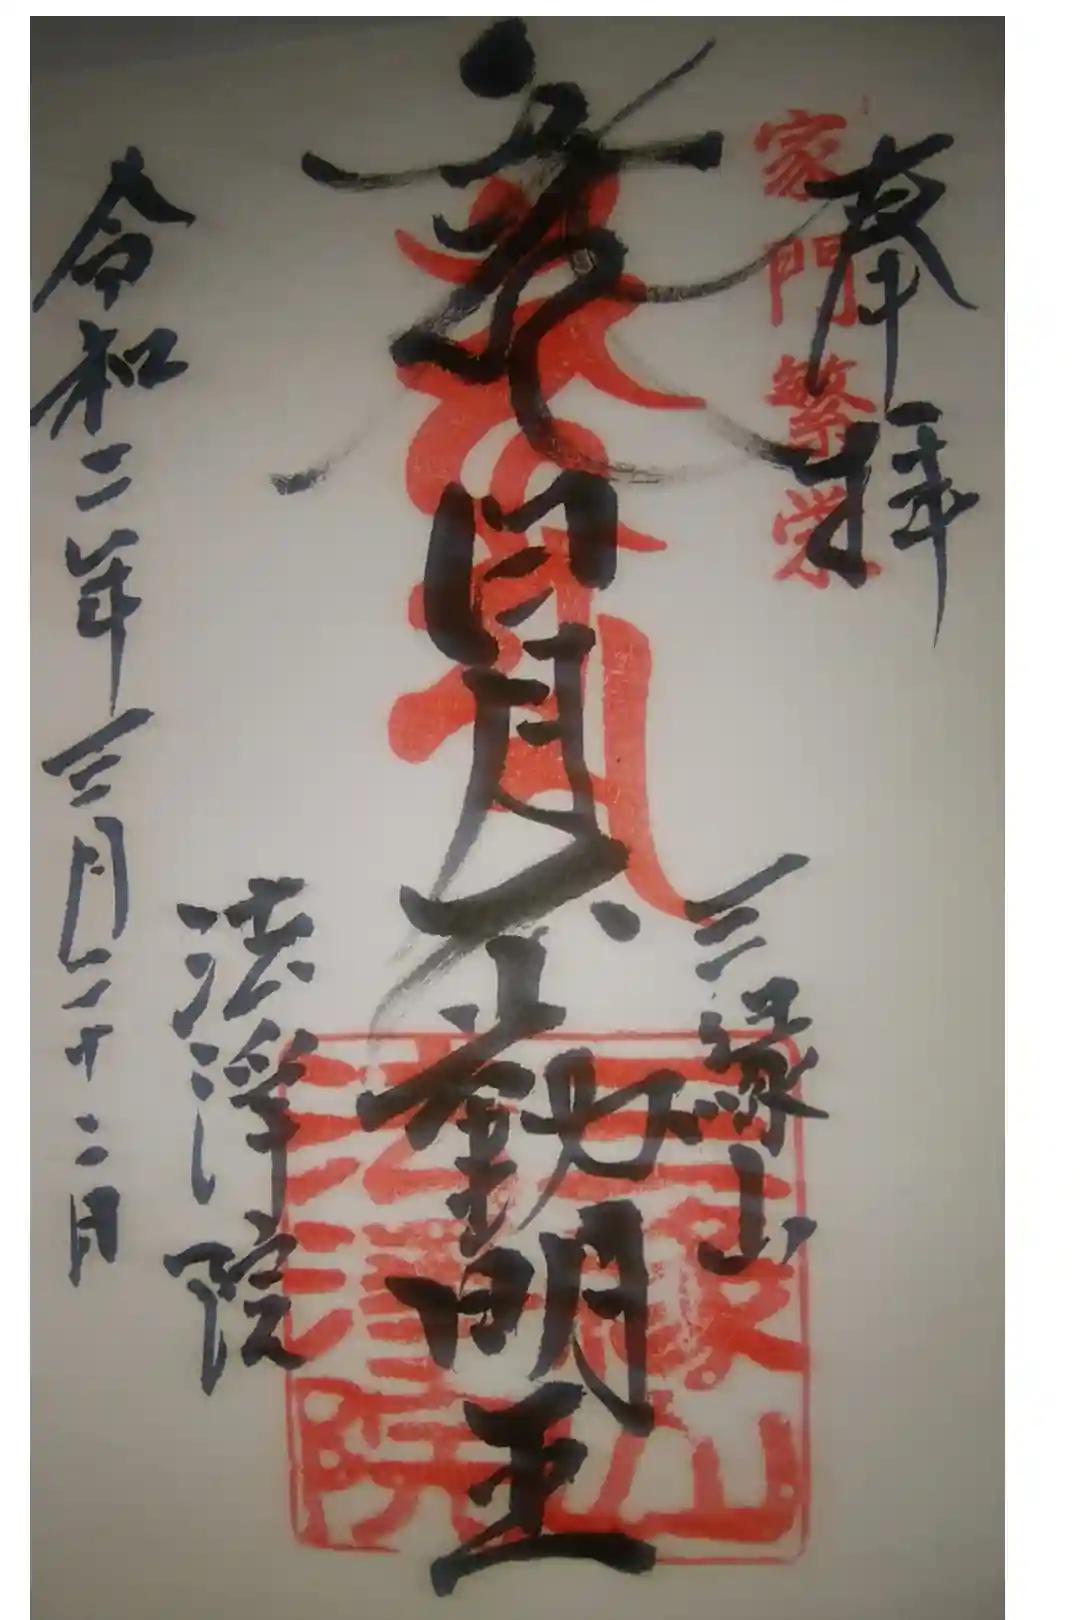 奉拝
家門繁栄
三縁山
不動明王
三縁山
法浄院
令和二年三月二十二日